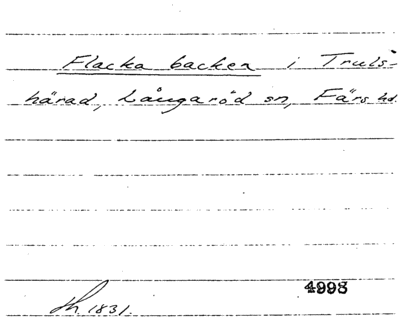 Flacka backen i Truls-
härad, Långaröd sn, Färs hd.
4998
1831.